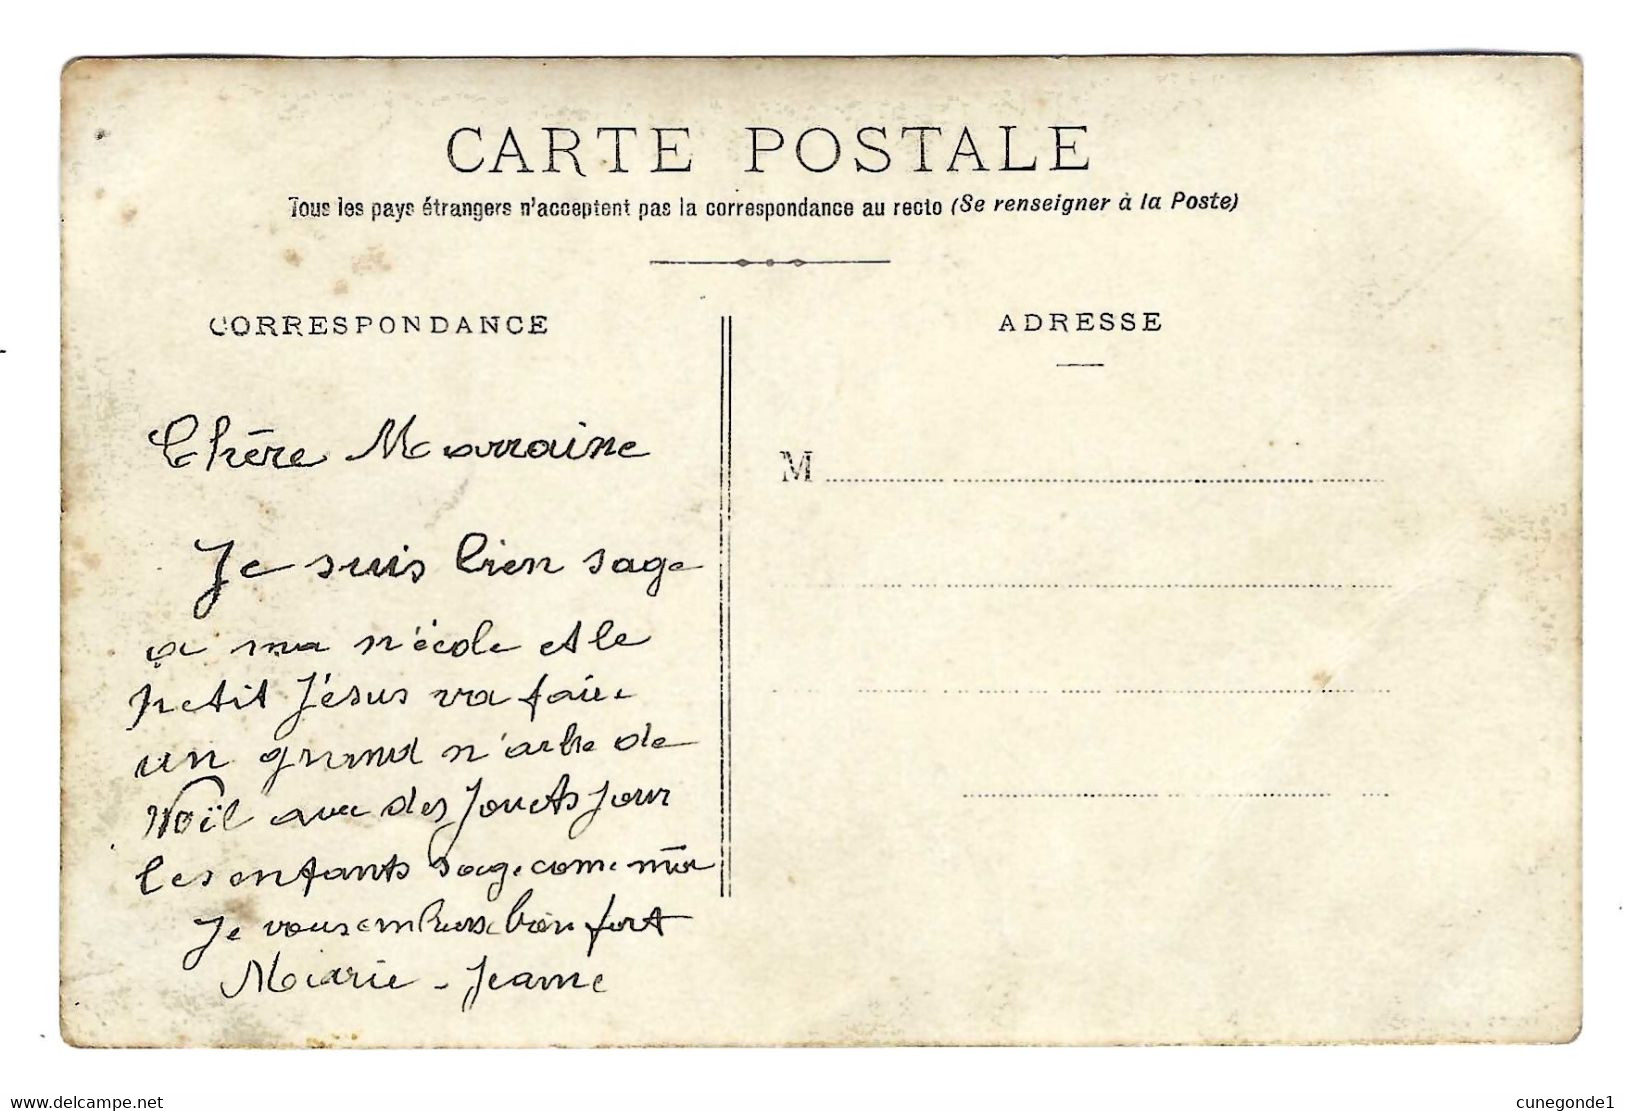 CARTE POSTALE
Tous les pays étrangers n'acceptent pas la correspondance au recto (Se renseigner à la Poste)
CORRESPONDANCE
Chère Marraine
Je suis bien sage
a ma n'école et le
petit Jésus va faire
un grand n'arbre de
Noïl avec des jouets pour
les enfants sage come moi
Je vous embrasse bien fort
Marie - Jeanne
ADRESSE
M
delcampe.net
cunegonde1